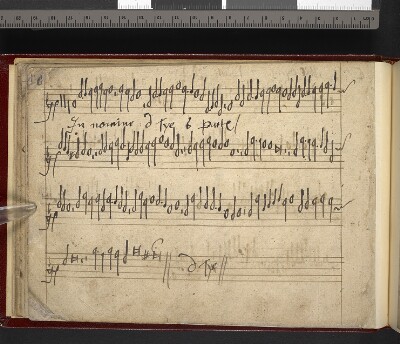 In nomine d tye 6 parte
d tye